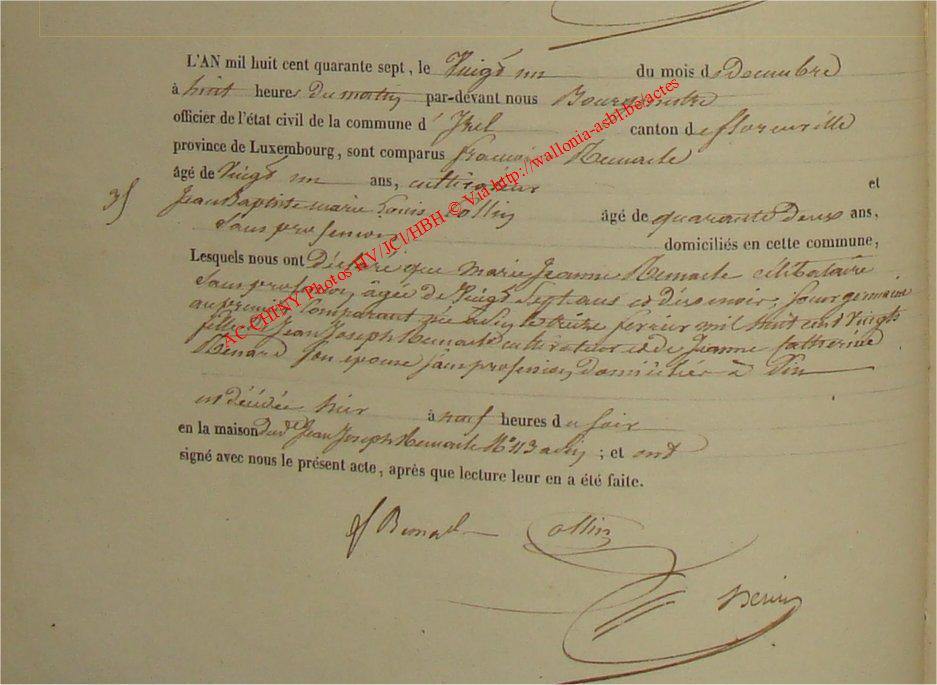 L'AN mil huit cent quarante sept, le Vingt un du mois de Decembre
à huit heures du matin par-devant nous Bourgmestre
officier de l'état civil de la commune d' Izel canton de florenville
province de Luxembourg, sont comparus françois Remacle
âgé de Vingt un ans, cultivateur et
Jean Baptiste marie Louis Collin âgé de quarante deux ans,
Sans profession domiciliés en cette commune,
3/
Lesquels nous ont Déclaré que marie Jeanne Remacle célibataire
Sans profession âgée de Vingt Sept ans et dix mois, Sœur germaine
au premier Comparant née à fevrier mil huit cent Vingt
fille de Jean Joseph Remacle cultivateur et de Jeanne Catherine
son épouse sans profession, domiciliés à
est décédée hier à neuf heures du soir
en la maison dud. Jean Joseph Remacle N° 113 ; et ont
signé avec nous le présent acte, après que lecture leur en a été faite.
Collin
AC-CHINY Photos HV/JCl/HBH © Via http://wallonia-asbl.be/actes